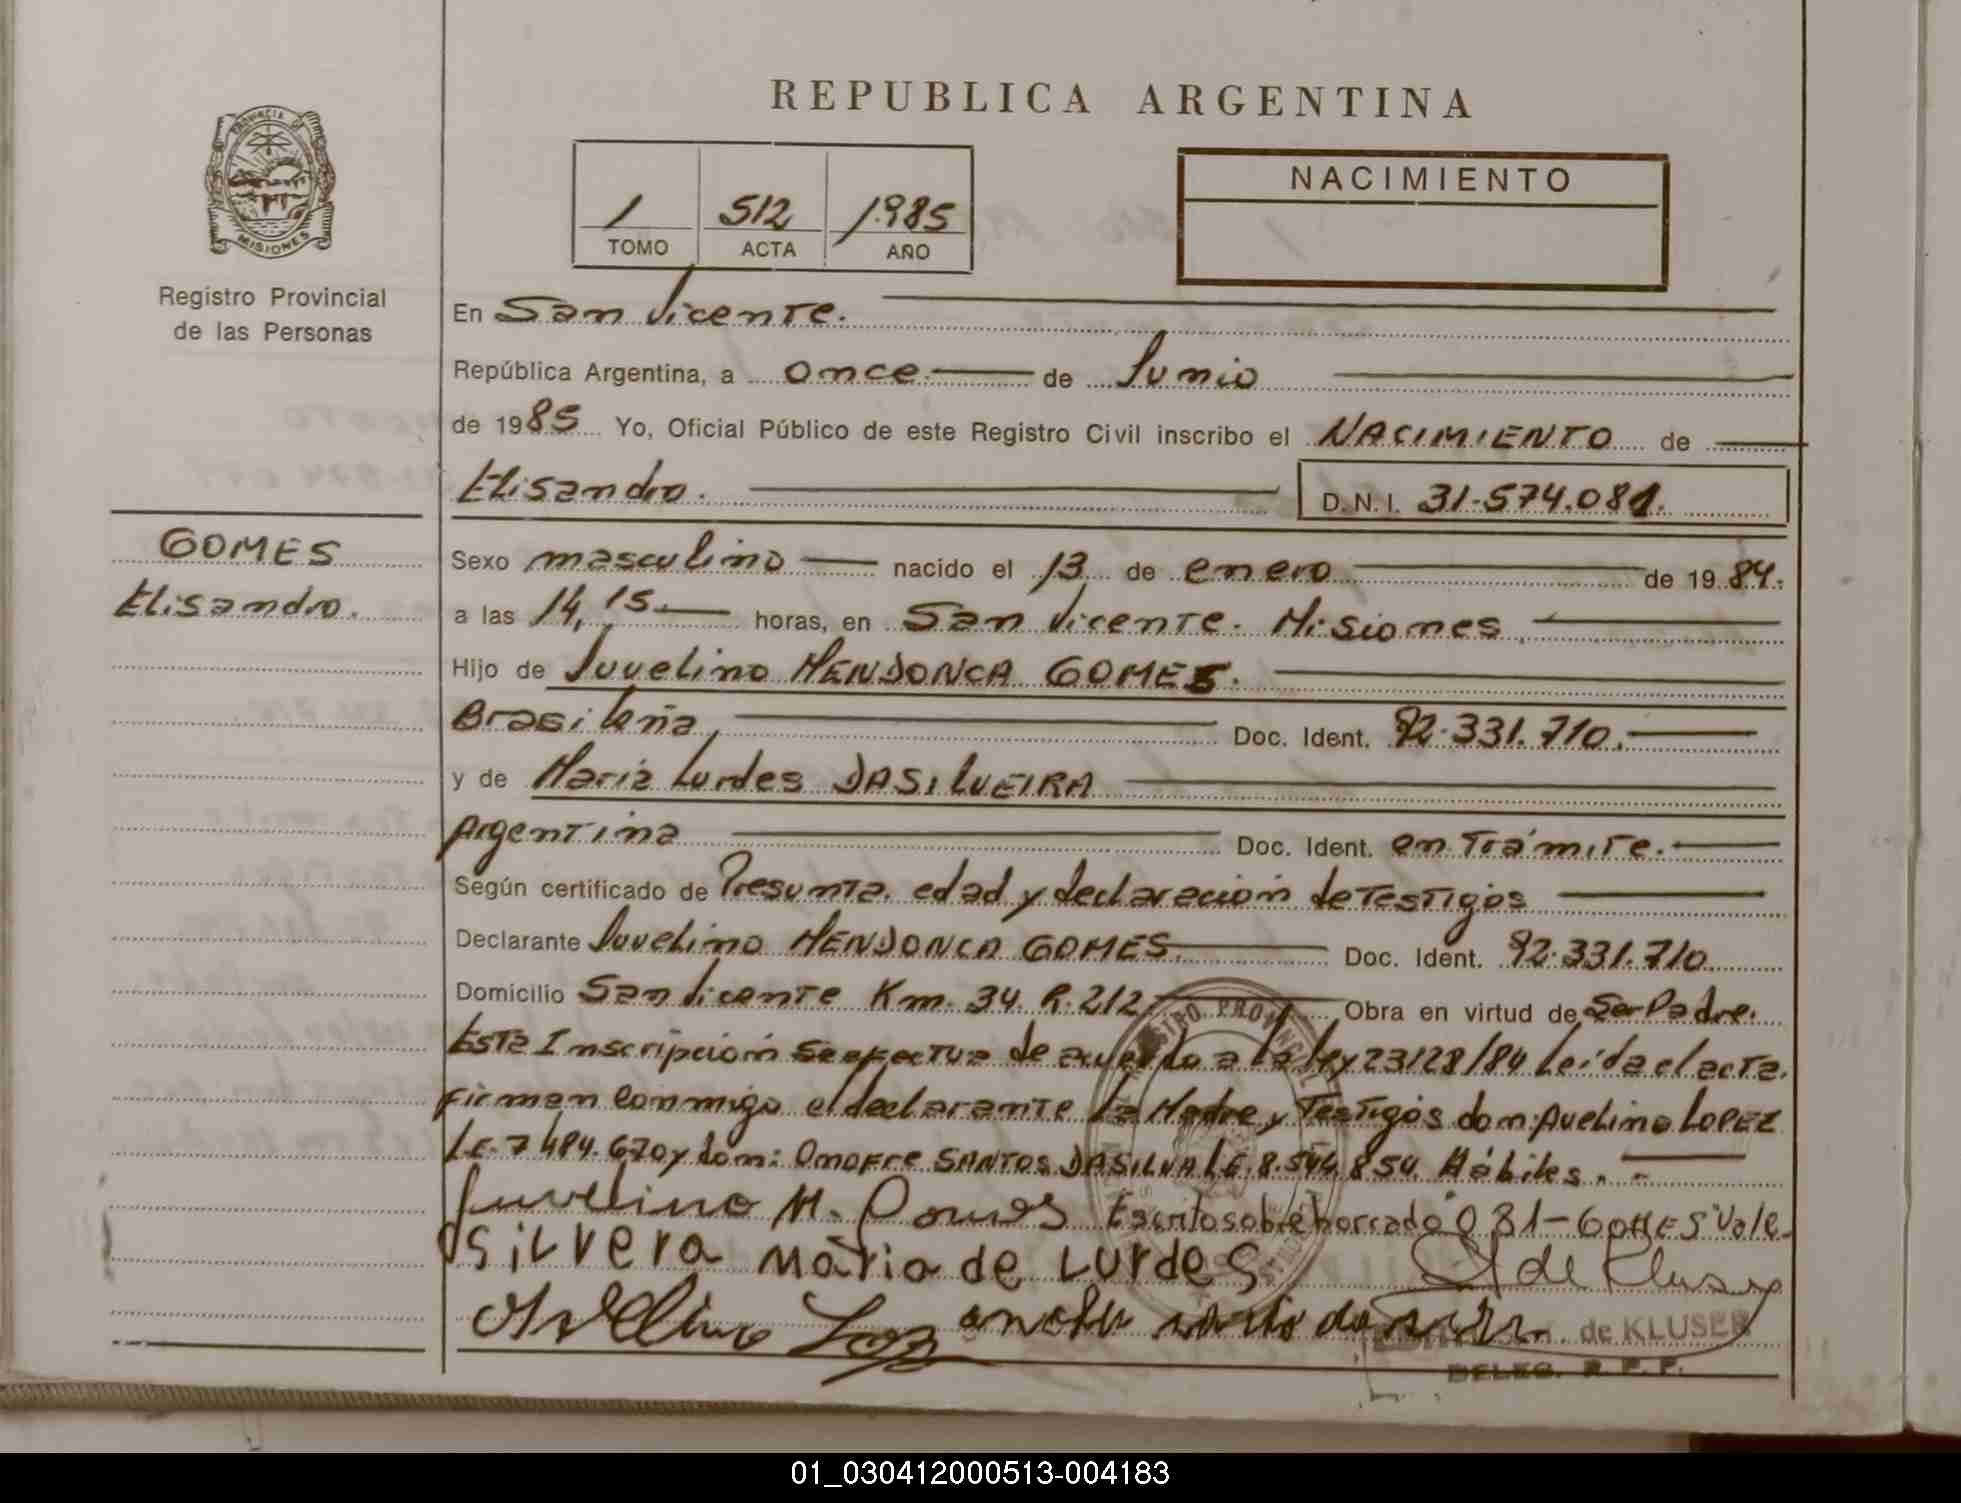 REPUBLICA ARGENTINA
PROVINCIA DE
MISIONES
Registro Provincial
de las Personas
1 512 1.985
TOMO ACTA AÑO
NACIMIENTO
En San Vicente.
República Argentina, a once. de Junio
de 1985 Yo, Oficial Público de este Registro Civil inscribo el NACIMIENTO de
Elisandro. D.N.I. 31.574.081.
GOMES
Elisandro.
Sexo masculino nacido el 13 de enero de 1984.
a las 14,15 horas, en San Vicente. Misiones
Hijo de Juvelino MENDONCA GOMES.
Brasileña, Doc. Ident. 92.331.710.
y de Maria Lurdes DASILVEIRA
Argentina Doc. Ident. en Trámite.
Según certificado de Presunta. edad y declaración de Testigos
Declarante Juvelino MENDONCA GOMES. Doc. Ident. 92.331.710
Domicilio San Vicente Km. 34. R. 212 Obra en virtud de Ser Padre.
Esta Inscripción se efectua de acuerdo a la ley 23128/84 leída el acta.
Firman conmigo el declarante la Madre y Testigos don: Avelino LOPEZ
L.E. 7.484.670 y don: Onofre SANTOS DASILVA L.E. 8.544.854. Hábiles.
Juvelino M. Gomes Escrito sobre borrado 081-GOMES Vale.
silvera maria de Lurdes
de Kluser
Avellino
de KLUSER
DELEG. R. P. P.
01_030412000513-004183